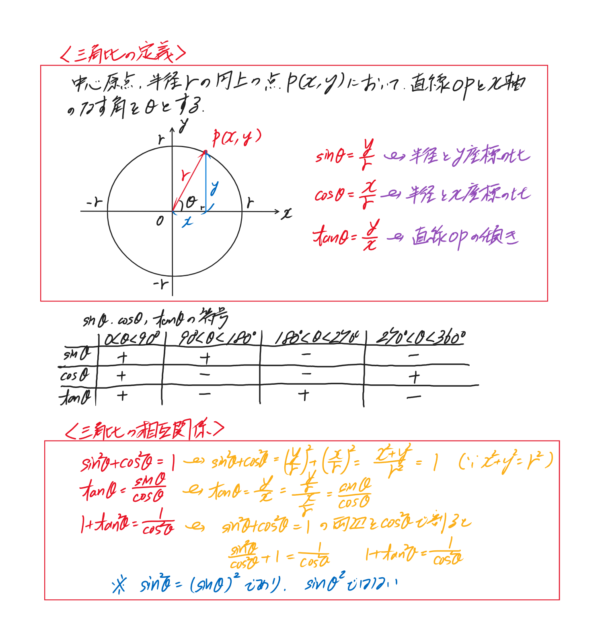 <三角比の定義>
中心原点,半径rの円上の点P(x,y)において,直線OPとx軸
のなす角をθとする.
y
r P(x,y)
r y
-r θ r
O x x
-r
sinθ=y/r → 半径とy座標の比
cosθ=x/r → 半径とx座標の比
tanθ=y/x → 直線OPの傾き
sinθ,cosθ,tanθの符号
0<θ<90° 90°<θ<180° 180°<θ<270° 270°<θ<360°
sinθ + + - -
cosθ + - - +
tanθ + - + -
<三角比の相互関係>
sin²θ+cos²θ=1 → sin²θ+cos²θ=(y/r)²+(x/r)²=(x²+y²)/r²=1 (∵x²+y²=r²)
tanθ=sinθ/cosθ → tanθ=y/x=(y/r)/(x/r)=sinθ/cosθ
1+tan²θ=1/cos²θ → sin²θ+cos²θ=1の両辺をcos²θで割ると
sin²θ/cos²θ+1=1/cos²θ 1+tan²θ=1/cos²θ
※ sin²θ=(sinθ)²であり, sinθ²ではない